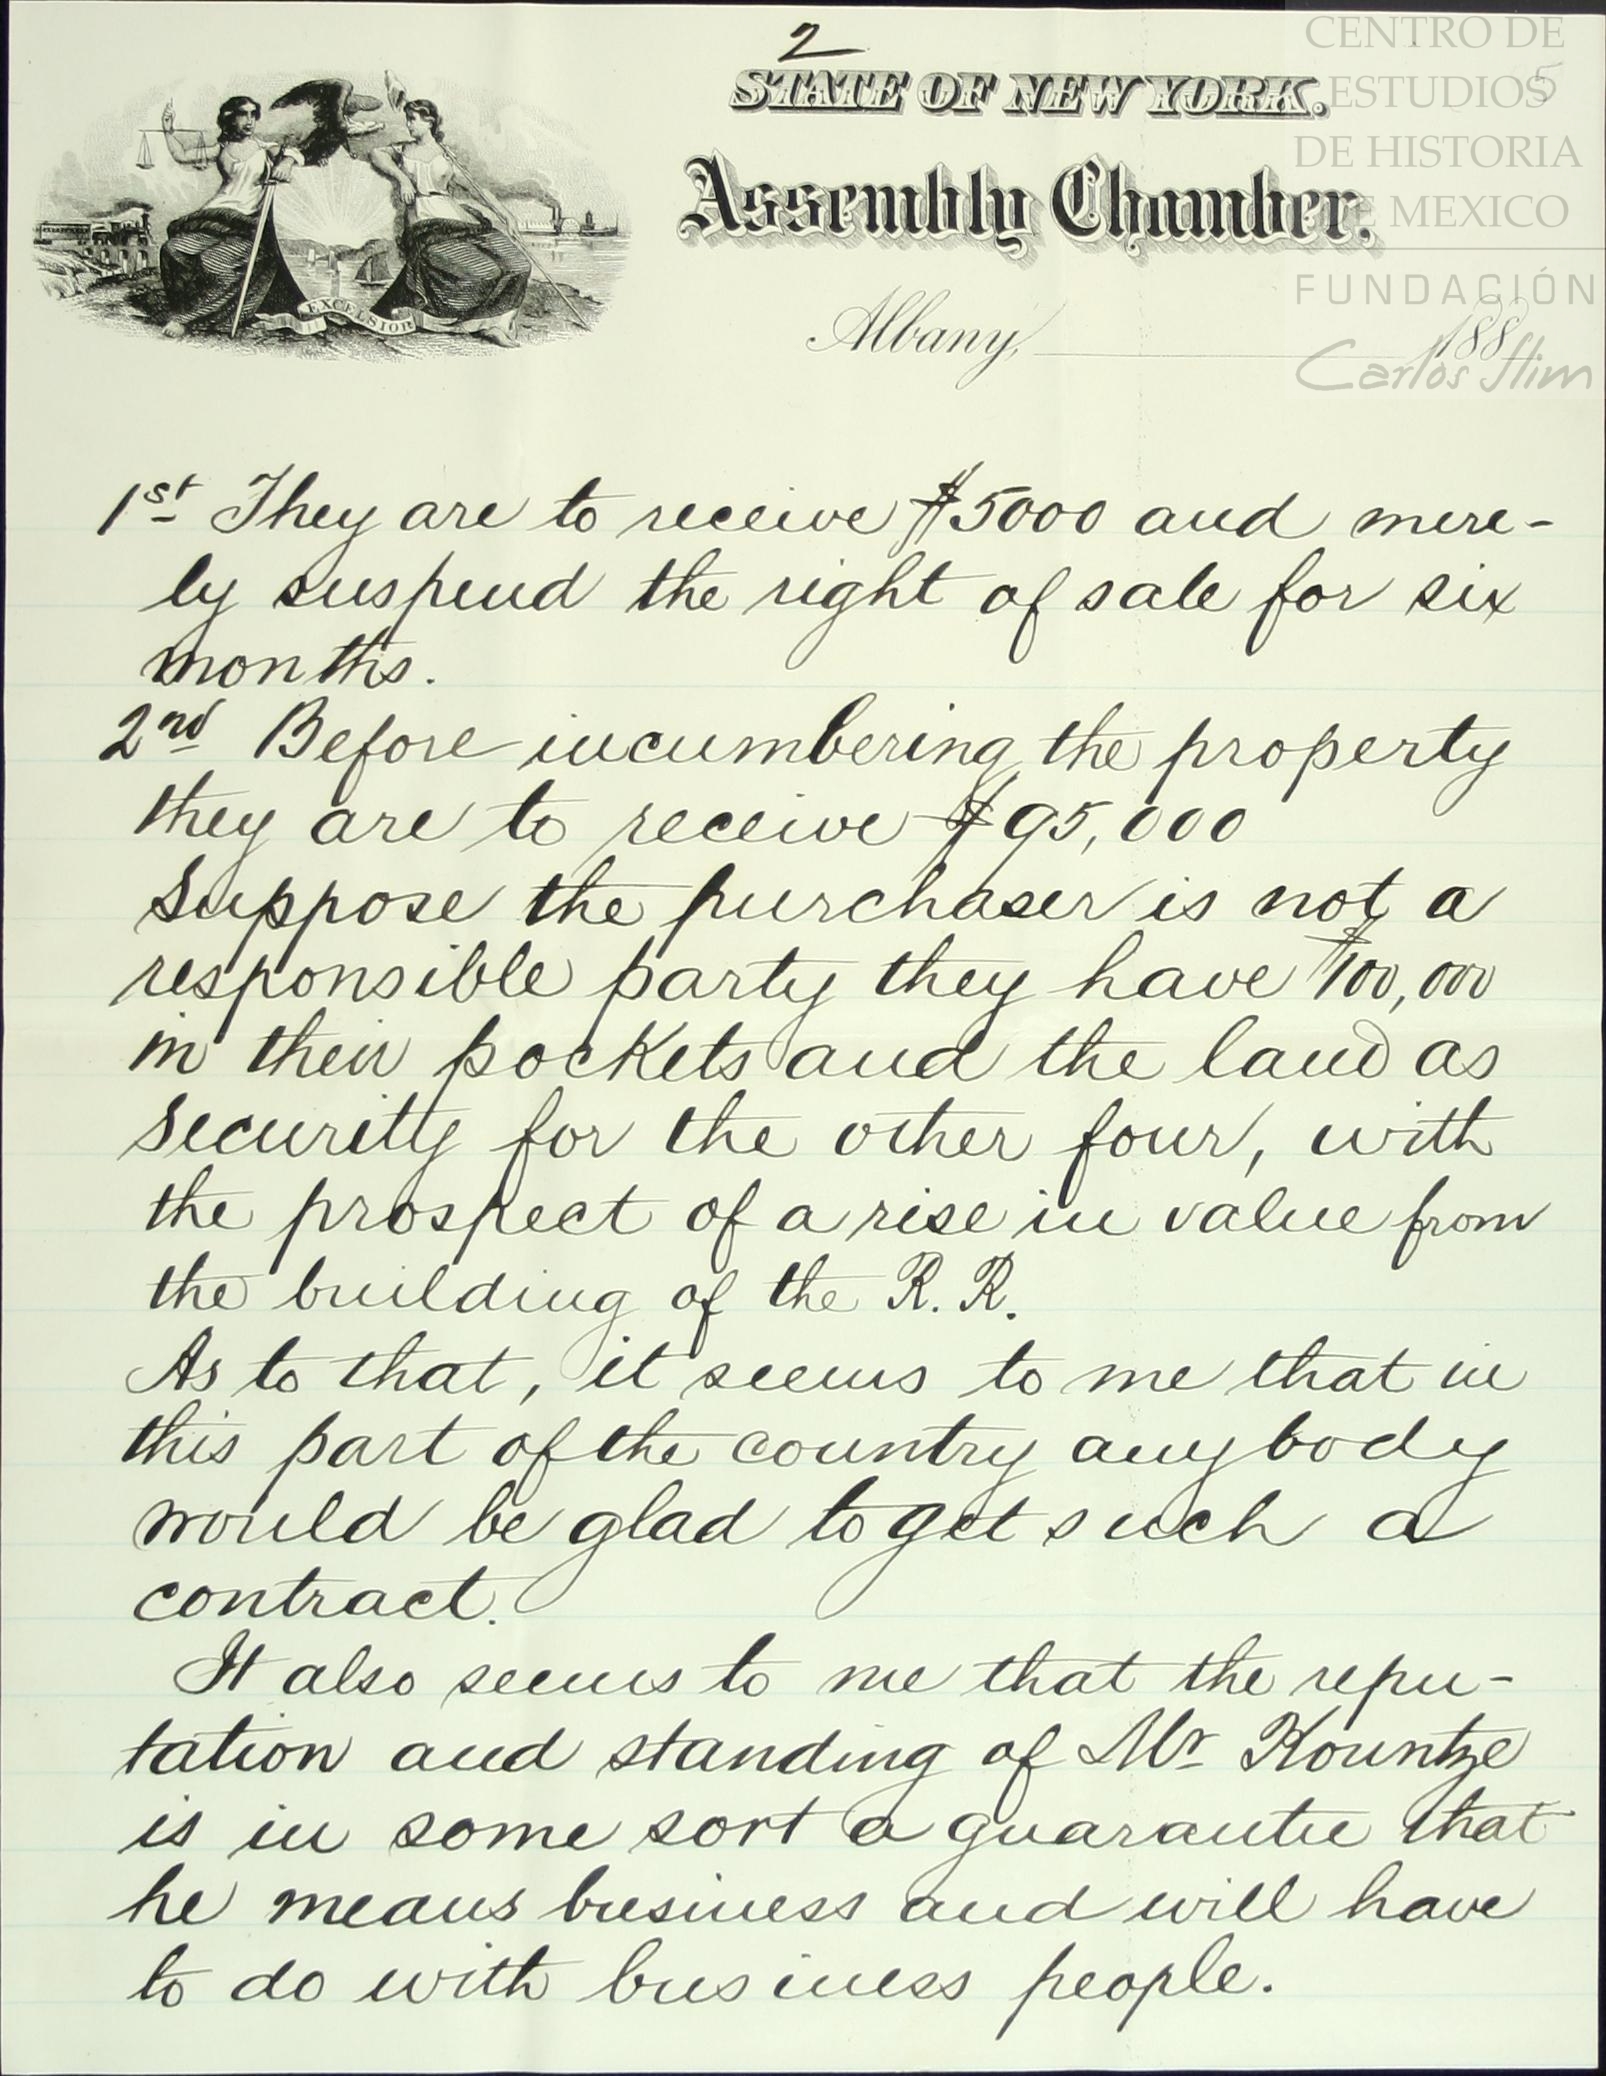 2
STATE OF NEW YORK.
Assembly Chamber,
Albany, 188
EXCELSIOR
CENTRO DE
ESTUDIOS
DE HISTORIA
DE MEXICO
FUNDACIÓN
Carlos Slim
5
1st They are to receive $5000 and mere-
ly suspend the right of sale for six
months.
2nd Before incumbering the property
they are to receive $95,000
Suppose the purchaser is not a
responsible party they have $100,000
in their pockets and the land as
security for the other four, with
the prospect of a rise in value from
the building of the R. R.
As to that, it seems to me that in
this part of the country anybody
would be glad to get such a
contract.
It also seems to me that the repu-
tation and standing of Mr Kountze
is in some sort a guarantee that
he means business and will have
to do with business people.